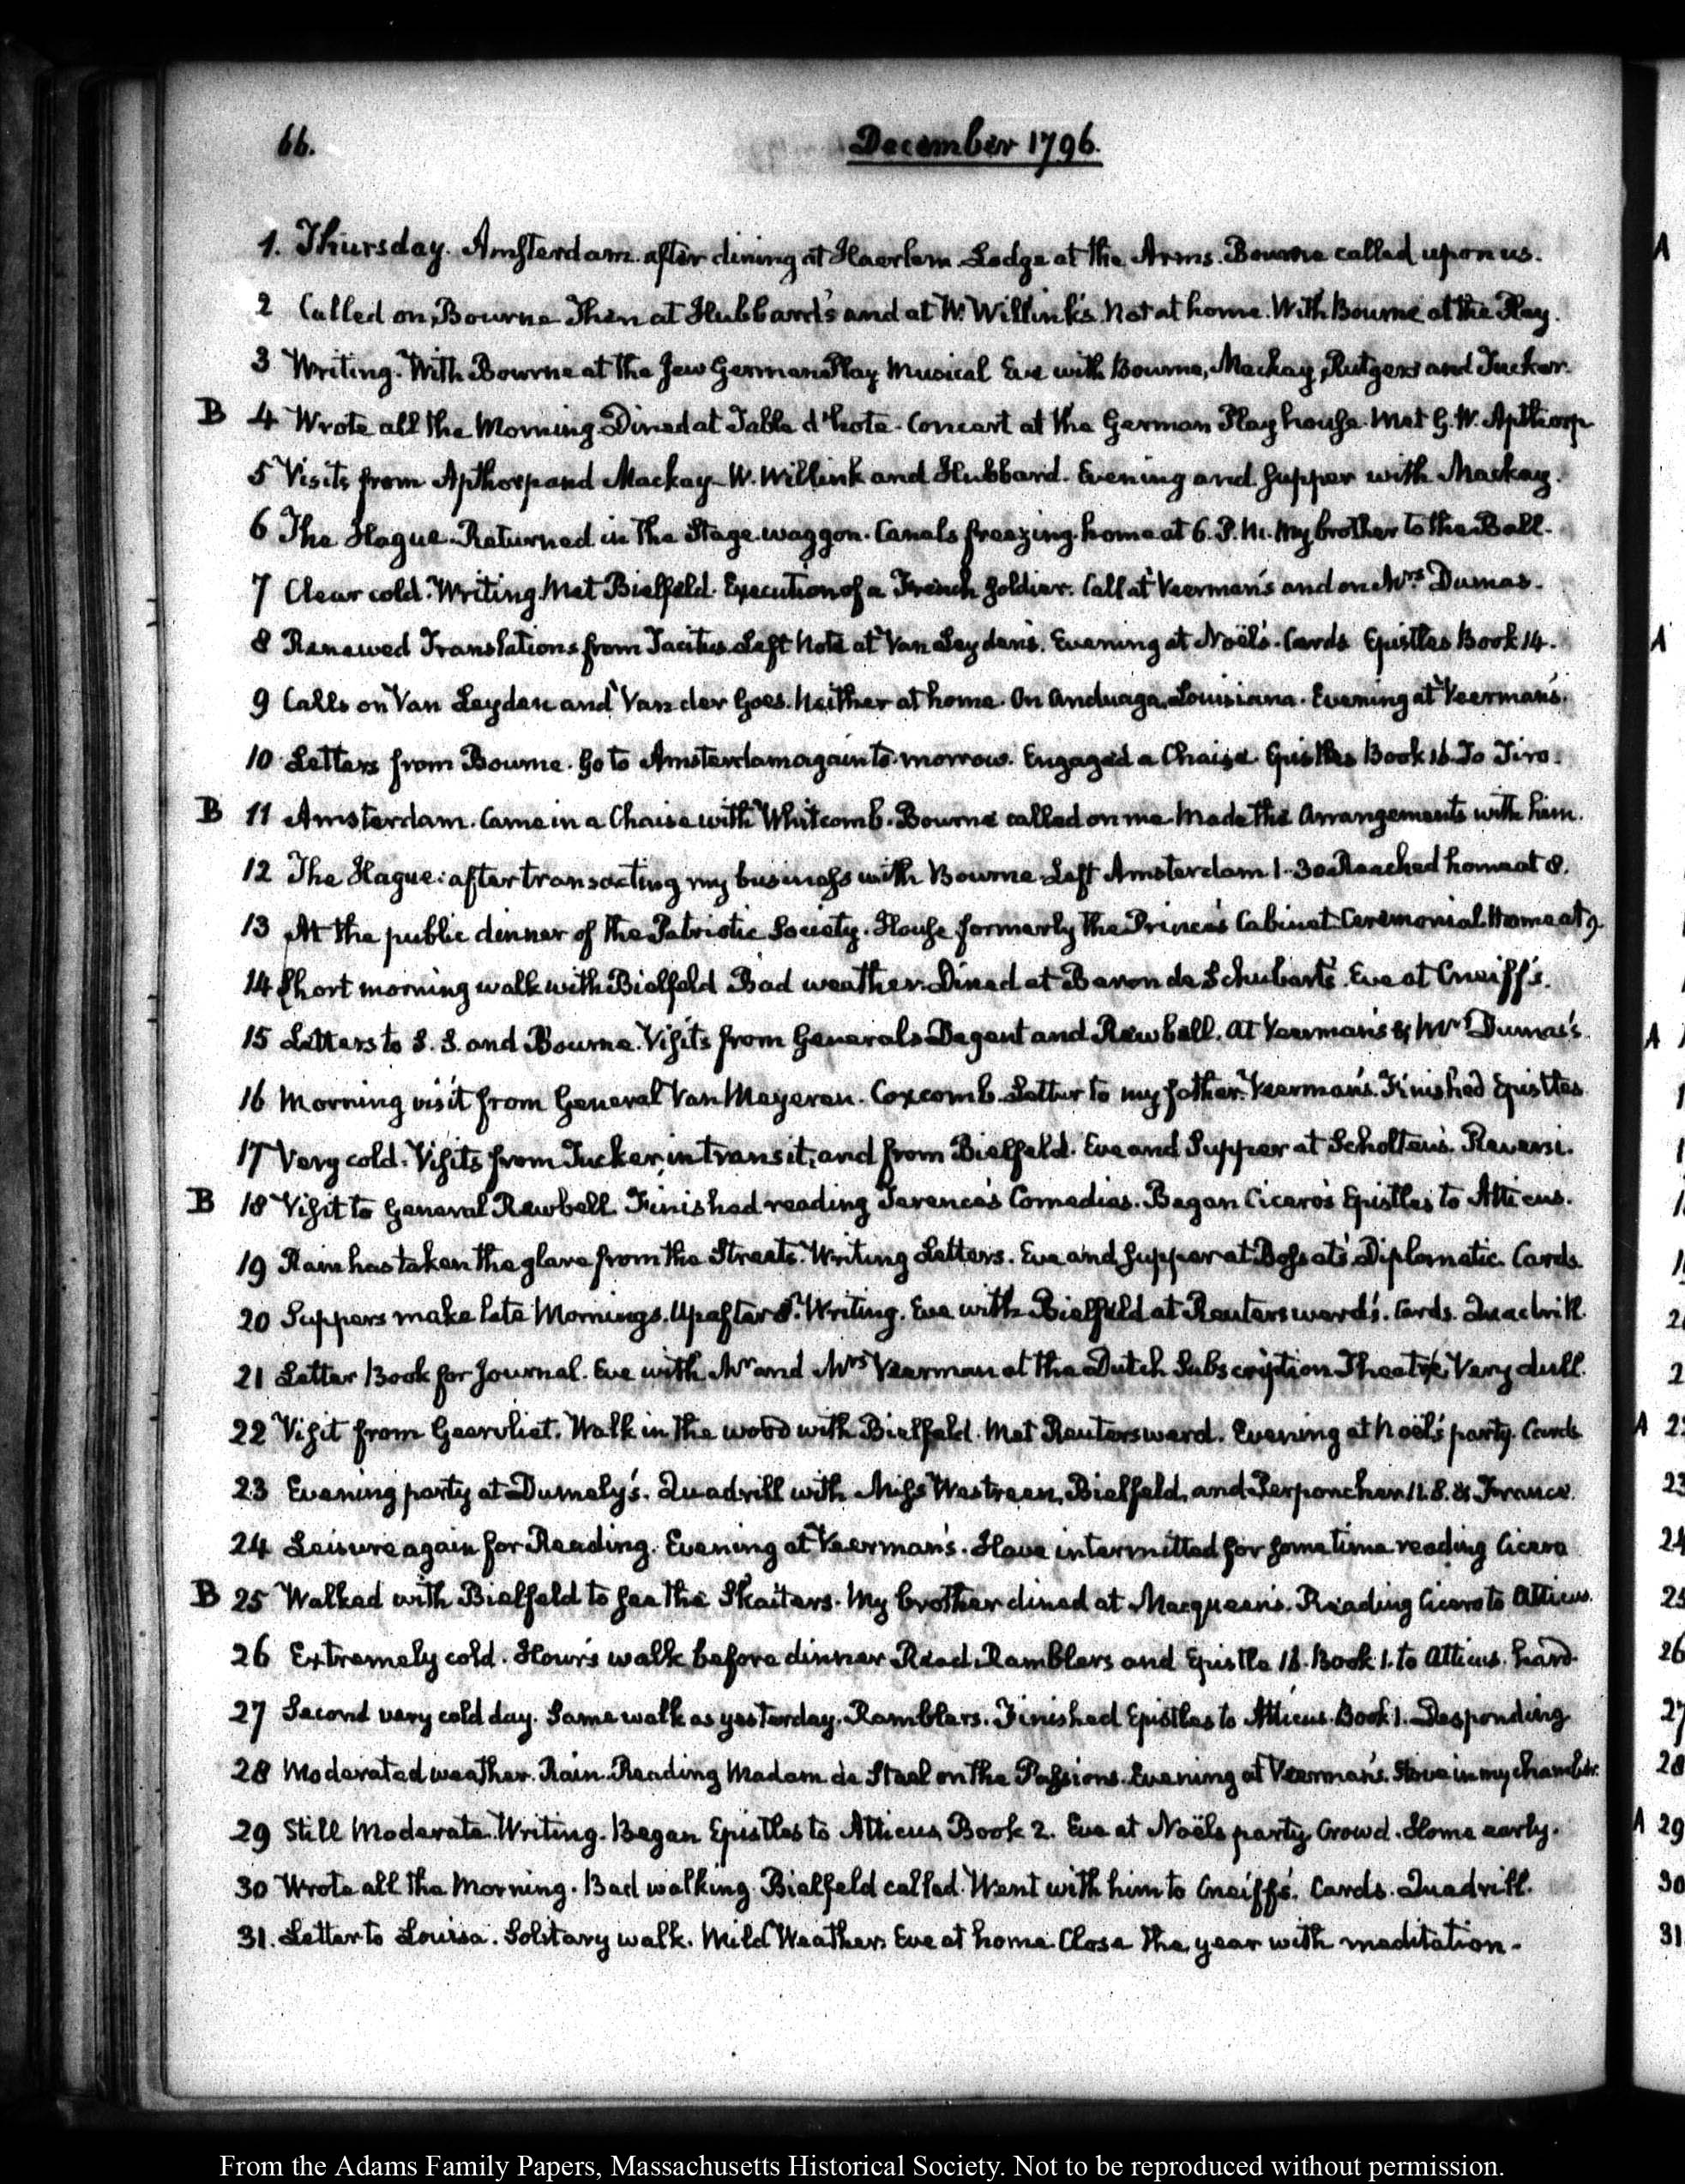 66.
December 1796.
1. Thursday. Amsterdam. after dining at Haerlem. Lodge at the Arms. Bourne called upon us.
2 Called on Bourne Then at Hubbard's and at W. Willink's. Not at home. With Bourne at the Play.
3 Writing. With Bourne at the Jew German Play Musical Eve with Bourne, Mackay, Rutgers and Tucker.
B 4 Wrote all the Morning. Dined at Table d'hote. Concert at the German Play house. Met G. W. Apthorp
5 Visits from Apthorp and Mackay. W. Willink and Hubbard. Evening and Supper with Mackay.
6 The Hague. Returned in the Stage waggon. Canals freezing. home at 6. P. M. My brother to the Ball.
7 Clear cold. Writing. Met Bielfeld. Execution of a French Soldier. Call at Veerman's and on Mrs. Dumas.
8 Renewed Translations from Tacitus. Left Note at Van Leyden's. Evening at Noël's. Cards Epistles Book 14.
9 Calls on Van Leyden and Van der Goes. Neither at home. On Anduaga. Louisiana. Evening at Veerman's.
10 Letters from Bourne. Go to Amsterdam again to-morrow. Engaged a Chaise. Epistles Book 16. To Tiro.
B 11 Amsterdam. Came in a Chaise with Whitcomb. Bourne called on me. Made the Arrangements with him.
12 The Hague: after transacting my business with Bourne. Left Amsterdam 1-30. Reached home at 8.
13 At the public dinner of the Patriotic Society. House formerly the Prince's Cabinet. Ceremonial. Home at 9.
14 Short morning walk with Bielfeld Bad weather. Dined at Baron de Schubart's. Eve at Cneiff's.
15 Letters to S. S. and Bourne. Visits from Generals Dejent and Rewbell. At Veerman's & Mrs Dumas's.
16 Morning visit from General Van Meyeren. Coxcomb. Letter to my father. Veerman's. Finished Epistles
17 Very cold. Visits from Tucker, in transit, and from Bielfeld. Eve and Supper at Scholten's. Reversi.
B 18 Visit to General Rewbell. Finished reading Terence's Comedies. Began Cicero's Epistles to Atticus.
19 Rain has taken the glare from the Streets. Writing Letters. Eve and Supper at Bosset's. Diplomatic. Cards.
20 Suppers make late Mornings. Up after 8. Writing. Eve with Bielfeld at Reutersward's. Cards. Quadrill.
21 Letter Book for Journal. Eve with Mr and Mrs Veerman at the Dutch Subscription Theatre Very dull.
22 Visit from Geervliet. Walk in the wood with Bielfeld. Met Reutersward. Evening at Noël's party. Cards
23 Evening party at Dumely's. Quadrill with Miss Westreen, Bielfeld, and Perponcher U.S. & France.
24 Leisure again for Reading. Evening at Veerman's. Have intermitted for some time reading Cicero
B 25 Walked with Bielfeld to see the Skaiters. My brother dined at Macqueen's. Reading Cicero to Atticus.
26 Extremely cold. Hour's walk before dinner Read Ramblers and Epistle 16. Book 1. to Atticus. hard.
27 Second very cold day. Same walk as yesterday. Ramblers. Finished Epistles to Atticus. Book 1. Desponding
28 Moderated weather. Rain. Reading Madam de Stael on the Passions. Evening at Veerman's. Stove in my chamber.
29 Still Moderate. Writing. Began Epistles to Atticus Book 2. Eve at Noëls party. Crowd. Home early.
30 Wrote all the Morning. Bad walking. Bielfeld called. Went with him to Cneiff's. Cards. Quadrill.
31. Letter to Louisa. Solitary walk. Mild Weather. Eve at home Close the year with meditation.
From the Adams Family Papers, Massachusetts Historical Society. Not to be reproduced without permission.